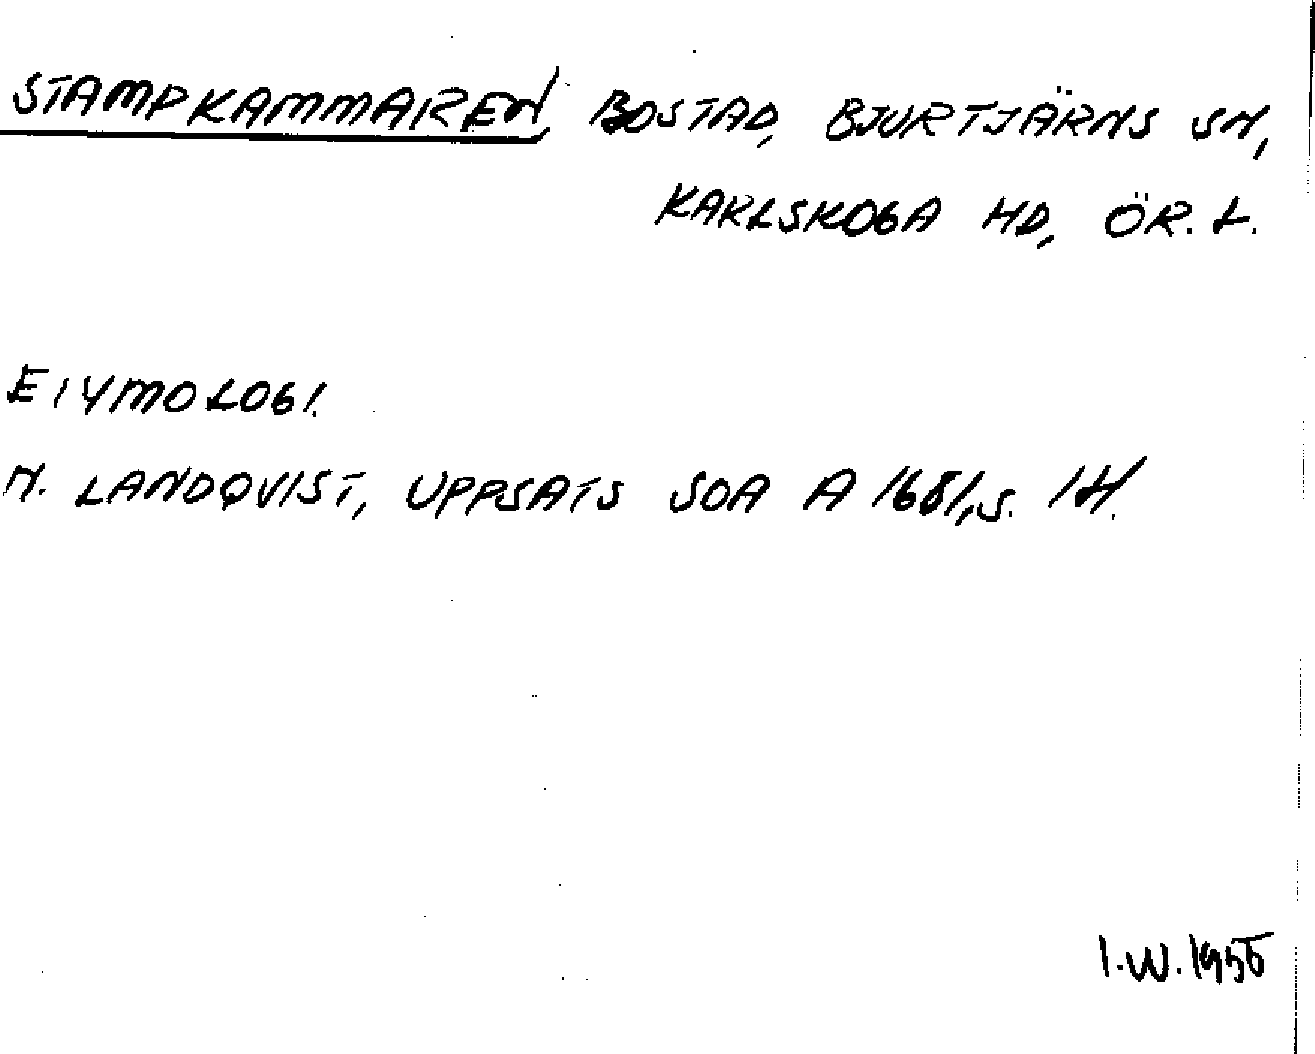 STAMPKAMMAREN, BOSTAD, BJURTJÄRNS SN,
KARLSKOGA HD, ÖR. L.
ETYMOLOGI.
N. LANDQVIST, UPPSATS SOA A 1681, S. 14.
I.W. 1955